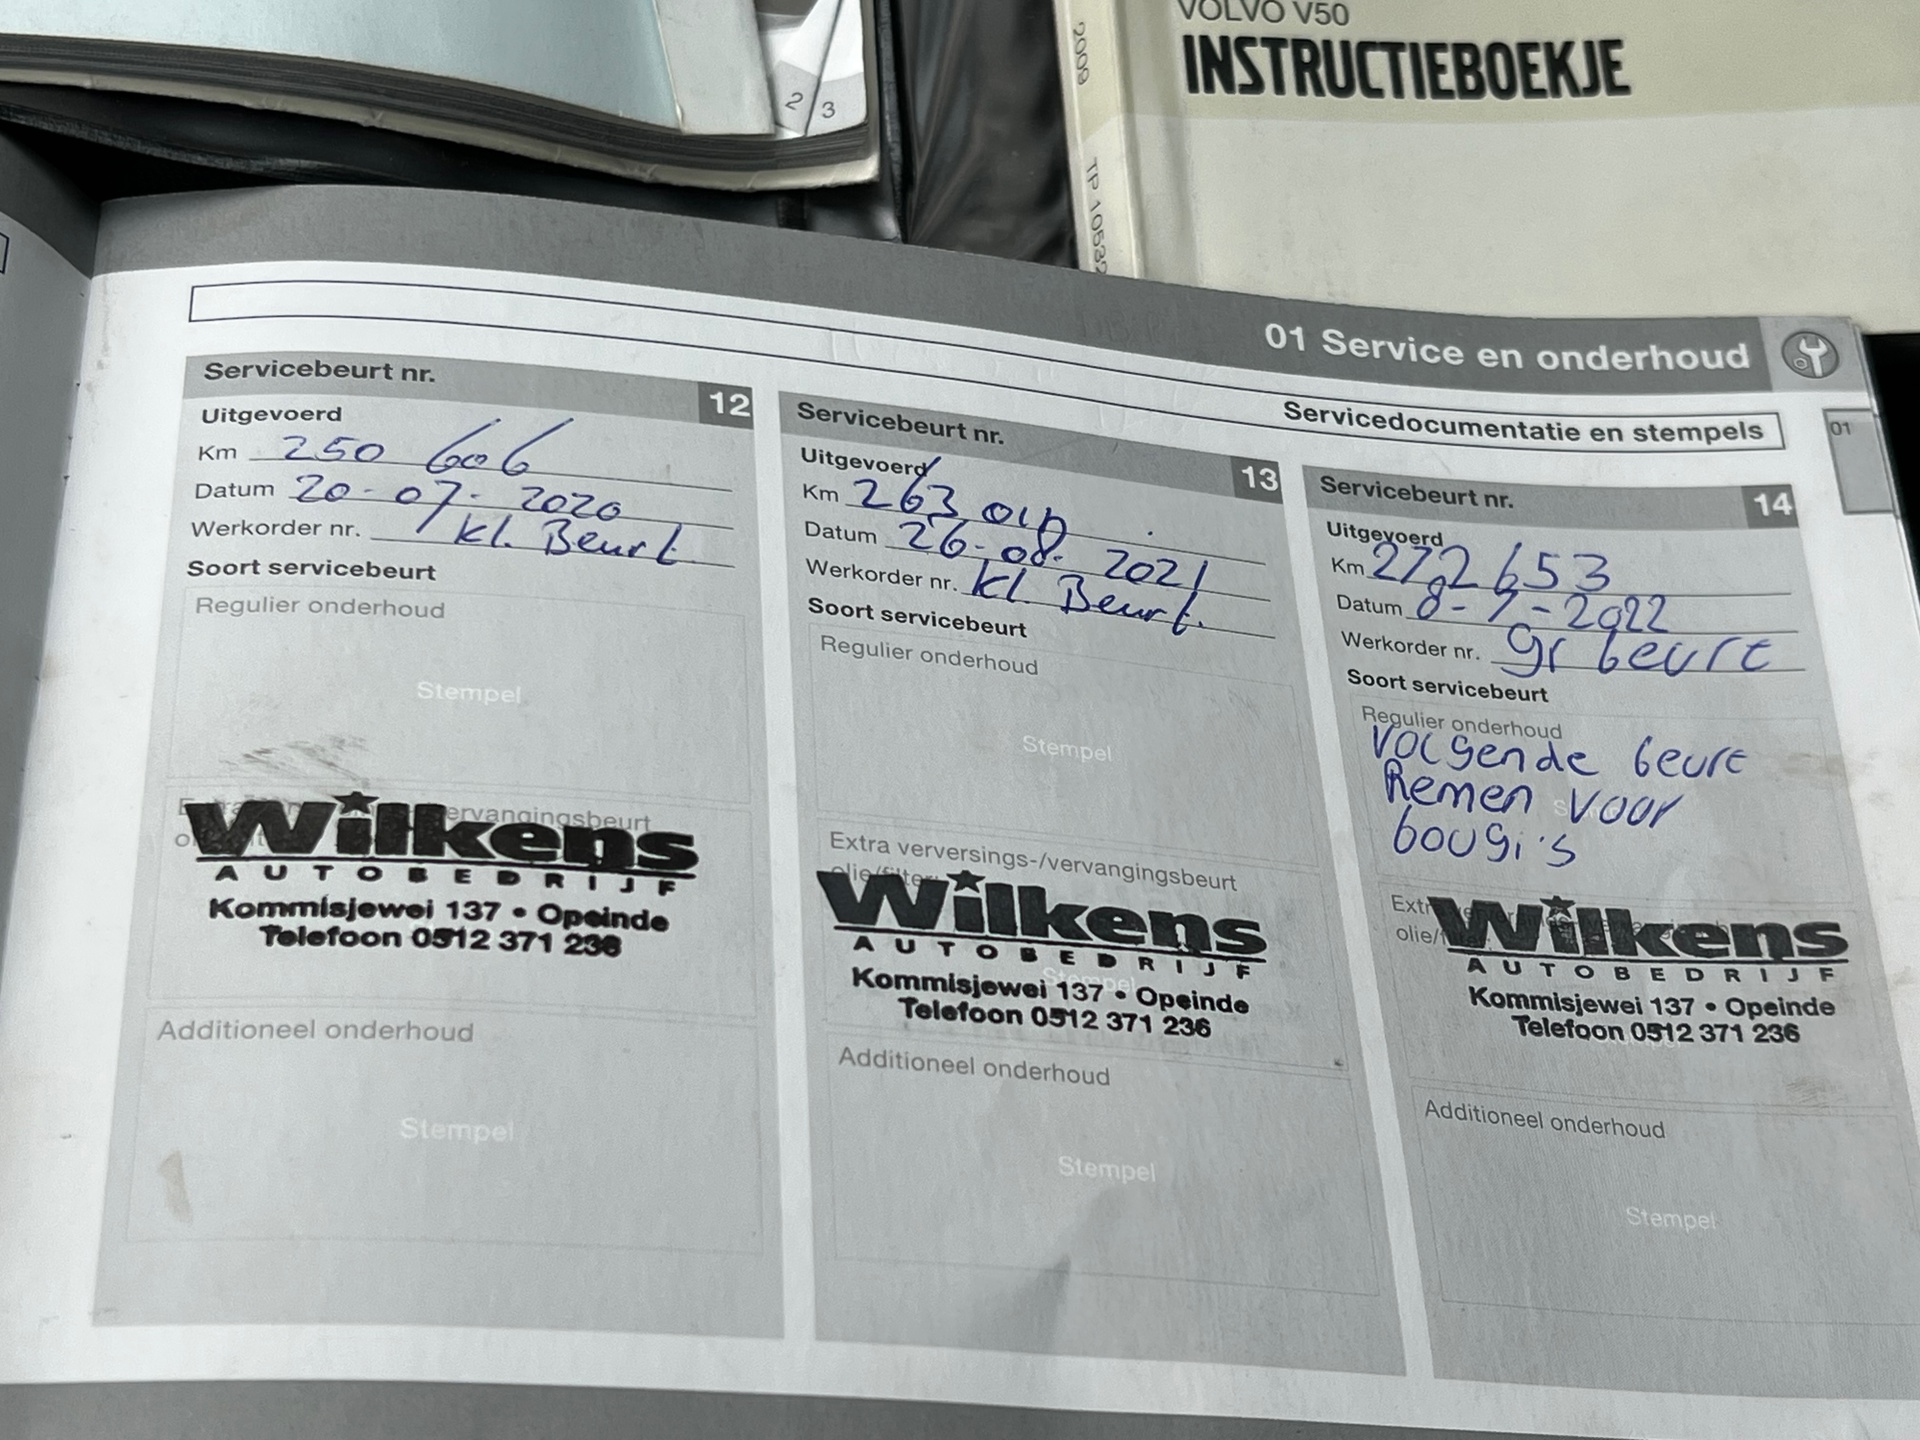 2 3
VOLVO V50
INSTRUCTIEBOEKJE
2009
TP 10532
01 Service en onderhoud
Servicedocumentatie en stempels
01
Servicebeurt nr. 12
Uitgevoerd
Km 250 606
Datum 20-07-2020
Werkorder nr. kl. Beurt
Soort servicebeurt
Regulier onderhoud
Stempel
Wilkens
AUTOBEDRIJF
Kommisjewei 137 • Opeinde
Telefoon 0512 371 236
Additioneel onderhoud
Stempel
Servicebeurt nr. 13
Uitgevoerd
Km 263
Datum 26-08-2021
Werkorder nr. kl. Beurt.
Soort servicebeurt
Regulier onderhoud
Stempel
Extra verversings-/vervangingsbeurt
olie/filter
Wilkens
AUTOBEDRIJF
Kommisjewei 137 • Opeinde
Telefoon 0512 371 236
Additioneel onderhoud
Stempel
Servicebeurt nr. 14
Uitgevoerd
Km 272653
Datum 8-7-2022
Werkorder nr. gr beurt
Soort servicebeurt
Regulier onderhoud
Volgende beurt
Remen voor
bougi's
Wilkens
AUTOBEDRIJF
Kommisjewei 137 • Opeinde
Telefoon 0512 371 236
Additioneel onderhoud
Stempel